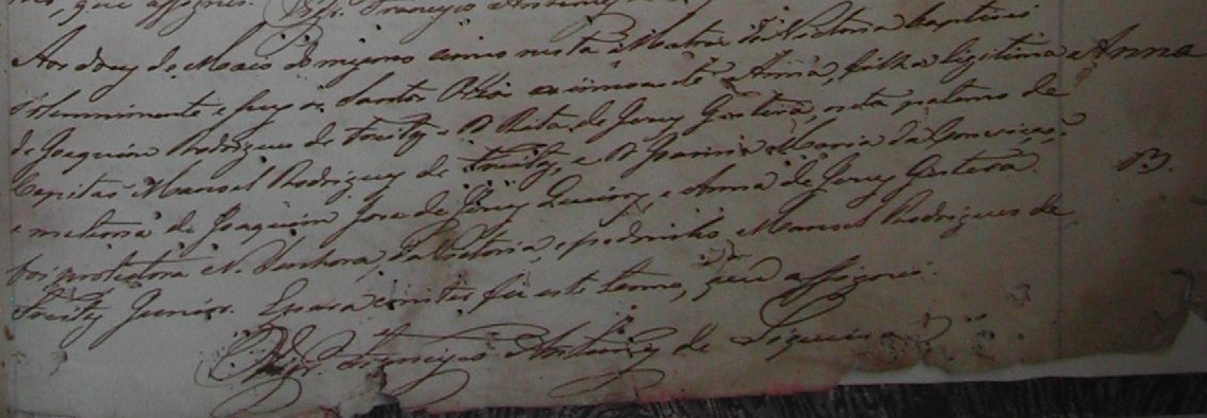 que assignei. Vigr. Francisco Antunes
Aos dous de Maio do mesmo anno nesta Matriz da Victoria baptisei
solemnemente e puz os Santos Oleos a innocente Anna, filha legitima Anna
de Joaquim Rodrigues de Freitas e D. Rita de Jesus Gesteira, neta paterna de
Capitão Manoel Rodrigues de Freitas, e D. Joanna Maria da Conceição,
e materna de Joaquim Jose de Jesus e Anna de Jesus Gesteira. B.
foi protectora N. Senhora da Victoria, e padrinho Manoel Rodrigues de
Freitas Junior. E para constar fiz este termo, que assignei.
Vigr. Francisco Antunes de Siqueira